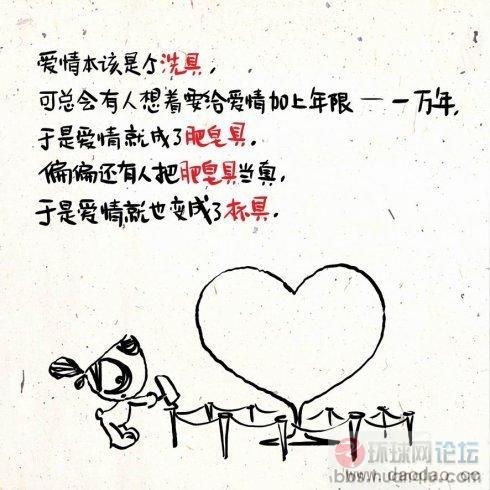 爱情本该是个洗具,
可总会有人想着要给爱情加上年限——一万年,
于是爱情就成了肥皂具.
偏偏还有人把肥皂具当真,
于是爱情就也变成了杯具.
环球网论坛
www.daodao.cc
bbs.huanqiu.com